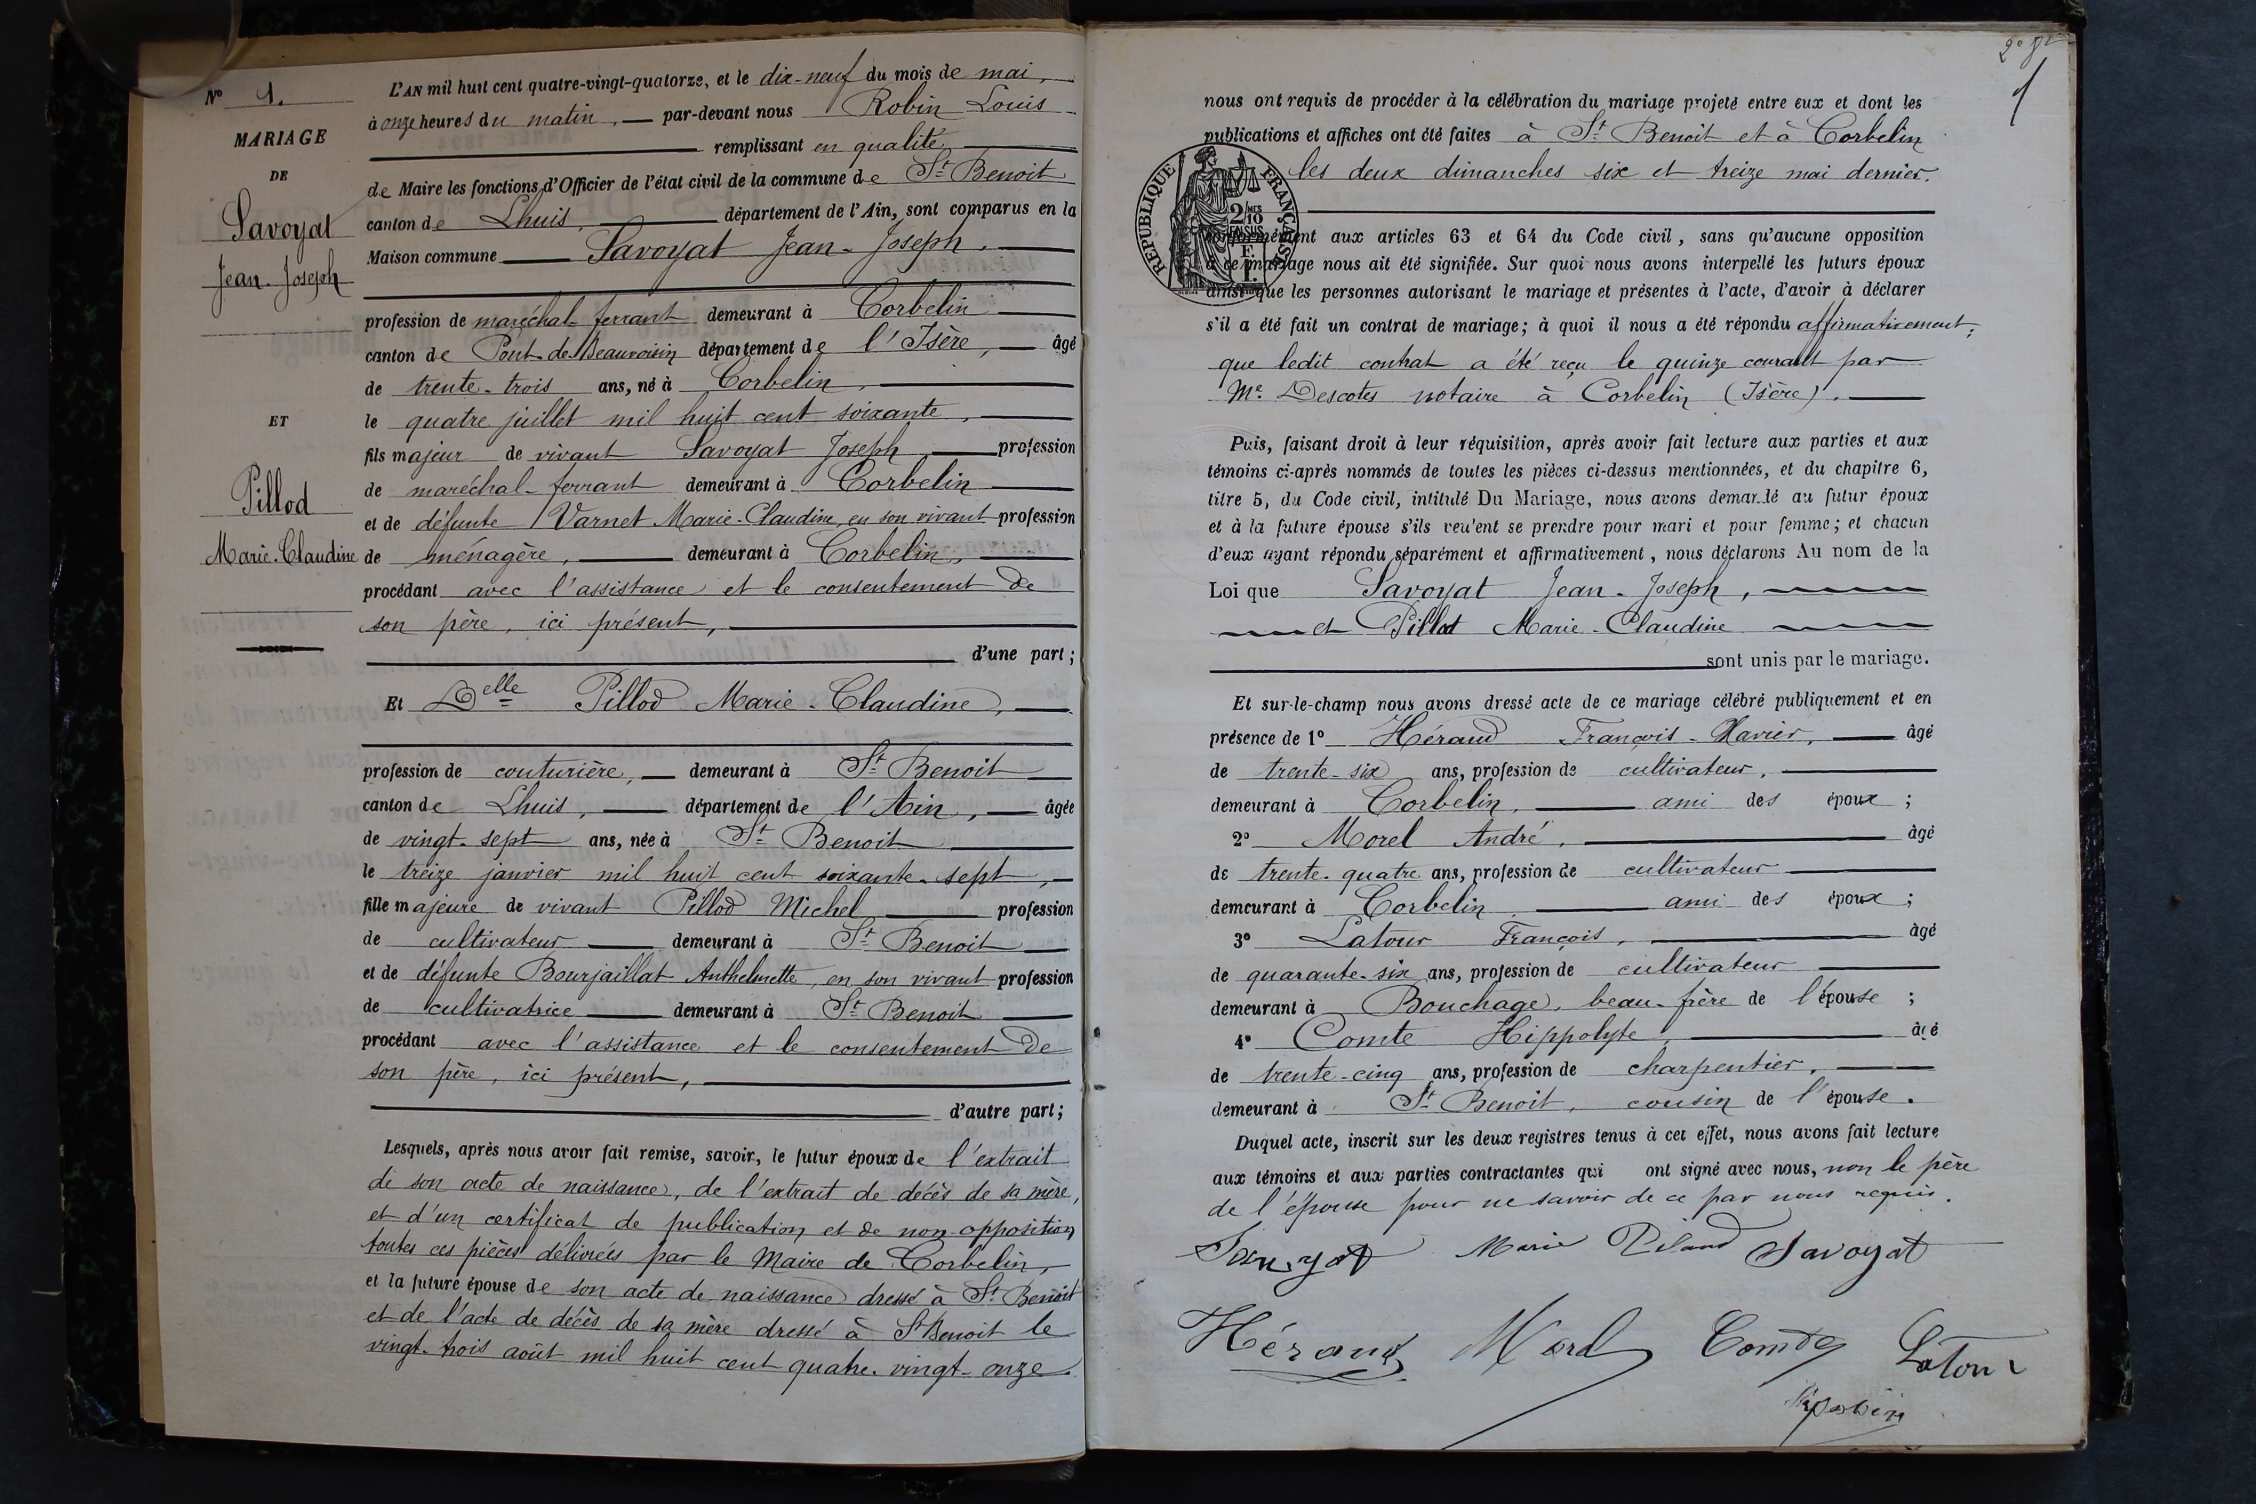 N° 1.
MARIAGE
DE
Savoyat
Jean-Joseph
ET
Pillod
Marie-Claudine
L'AN mil huit cent quatre-vingt-quatorze, et le dix-neuf du mois de mai,
à onze heures du matin, par-devant nous Robin Louis
remplissant en qualité
de Maire les fonctions d'Officier de l'état civil de la commune de St Benoit
canton de Lhuis, département de l'Ain, sont comparus en la
Maison commune Savoyat Jean-Joseph,
profession de maréchal-ferrant demeurant à Corbelin
canton de Pont-de-Beauvoisin département de l'Isère, âgé
de trente-trois ans, né à Corbelin,
le quatre juillet mil huit cent soixante,
fils majeur de vivant Savoyat Joseph, profession
de maréchal-ferrant demeurant à Corbelin
et de défunte Varnet Marie-Claudine, en son vivant profession
de ménagère, demeurant à Corbelin,
procédant avec l'assistance et le consentement de
son père, ici présent,
d'une part ;
Et Delle Pillod Marie-Claudine,
profession de couturière, demeurant à St Benoit
canton de Lhuis, département de l'Ain, âgée
de vingt-sept ans, née à St Benoit
le treize janvier mil huit cent soixante-sept,
fille majeure de vivant Pillod Michel profession
de cultivateur demeurant à St Benoit
et de défunte Bourjaillat Anthelmette, en son vivant profession
de cultivatrice demeurant à St Benoit
procédant avec l'assistance et le consentement de
son père, ici présent,
d'autre part ;
Lesquels, après nous avoir fait remise, savoir, le futur époux de l'extrait
de son acte de naissance, de l'extrait de décès de sa mère,
et d'un certificat de publication et de non-opposition
toutes ces pièces délivrées par le Maire de Corbelin,
et la future épouse de son acte de naissance dressé à St Benoit
et de l'acte de décès de sa mère dressé à St Benoit le
vingt-trois août mil huit cent quatre-vingt-onze
1
nous ont requis de procéder à la célébration du mariage projeté entre eux et dont les
publications et affiches ont été faites à St Benoit et à Corbelin
les deux dimanches six et treize mai dernier.
RÉPUBLIQUE FRANÇAISE
2/10 EN SUS
conformément aux articles 63 et 64 du Code civil, sans qu'aucune opposition
à ce mariage nous ait été signifiée. Sur quoi nous avons interpellé les futurs époux
ainsi que les personnes autorisant le mariage et présentes à l'acte, d'avoir à déclarer
s'il a été fait un contrat de mariage ; à quoi il nous a été répondu affirmativement,
que ledit contrat a été reçu le quinze courant par
Me Descotes notaire à Corbelin (Isère).
Puis, faisant droit à leur réquisition, après avoir fait lecture aux parties et aux
témoins ci-après nommés de toutes les pièces ci-dessus mentionnées, et du chapitre 6,
titre 5, du Code civil, intitulé Du Mariage, nous avons demandé au futur époux
et à la future épouse s'ils veulent se prendre pour mari et pour femme ; et chacun
d'eux ayant répondu séparément et affirmativement, nous déclarons Au nom de la
Loi que Savoyat Jean-Joseph,
et Pillod Marie-Claudine
sont unis par le mariage.
Et sur-le-champ nous avons dressé acte de ce mariage célébré publiquement et en
présence de 1° Héraud François-Xavier, âgé
de trente-six ans, profession de cultivateur,
demeurant à Corbelin, ami des époux ;
2° Morel André, âgé
de trente-quatre ans, profession de cultivateur
demeurant à Corbelin, ami des époux ;
3° Latour François, âgé
de quarante-six ans, profession de cultivateur
demeurant à Bouchage, beau-frère de l'épouse ;
4° Comte Hippolyte, âgé
de trente-cinq ans, profession de charpentier,
demeurant à St Benoit, cousin de l'épouse.
Duquel acte, inscrit sur les deux registres tenus à cet effet, nous avons fait lecture
aux témoins et aux parties contractantes qui ont signé avec nous, non le père
de l'épouse pour ne savoir de ce par nous requis.
Savoyat Marie Pilaud Savoyat
Héraud Morel Comte Latour
Robin